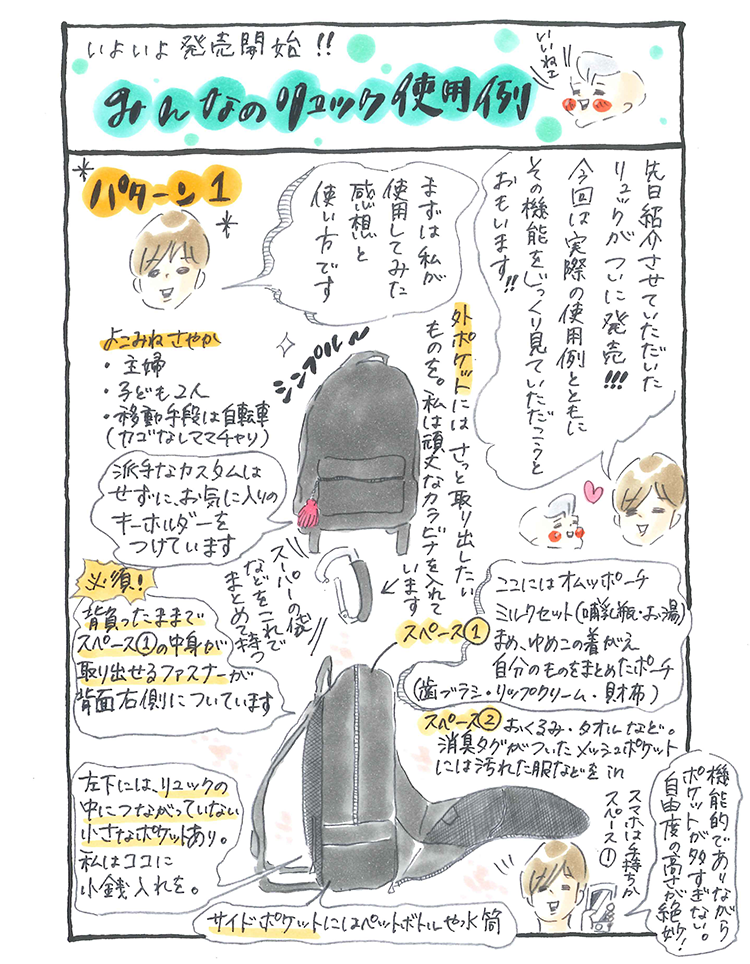 いよいよ発売開始!!
みんなのリュック使用例
いいねェ
パターン1
先日紹介させていただいた
リュックがついに発売!!!
今回は実際の使用例とともに
その機能をじっくり見ていただこうと
おもいます!!
まずは私が
使用してみた
感想と
使い方です
よこみねさやか
・主婦
・子ども2人
・移動手段は自転車
(カゴなしママチャリ)
シンプル〜
外ポケットには さっと取り出したい
ものを。私は頑丈なカラビナを入れて
います
派手なカスタムは
せずに、お気に入りの
キーホルダーを
つけています
スーパーの袋
などをこれで
まとめて持つ
必須!
背負ったままで
スペース①の中身が
取り出せるファスナーが
背面右側についています
スペース①
ここにはオムツポーチ
ミルクセット(哺乳瓶・お湯)
まめ、ゆめこの着がえ
自分のものをまとめたポーチ
(歯ブラシ・リップクリーム・財布)
スペース② おくるみ・タオルなど。
消臭タグがついたメッシュポケット
には汚れた服などをin
左下には、リュックの
中につながっていない
小さなポケットあり。
私はココに
小銭入れを。
サイドポケットにはペットボトルや水筒
スマホは手持ちか
スペース①
機能的でありながら
ポケットが多すぎない。
自由度の高さが絶妙!